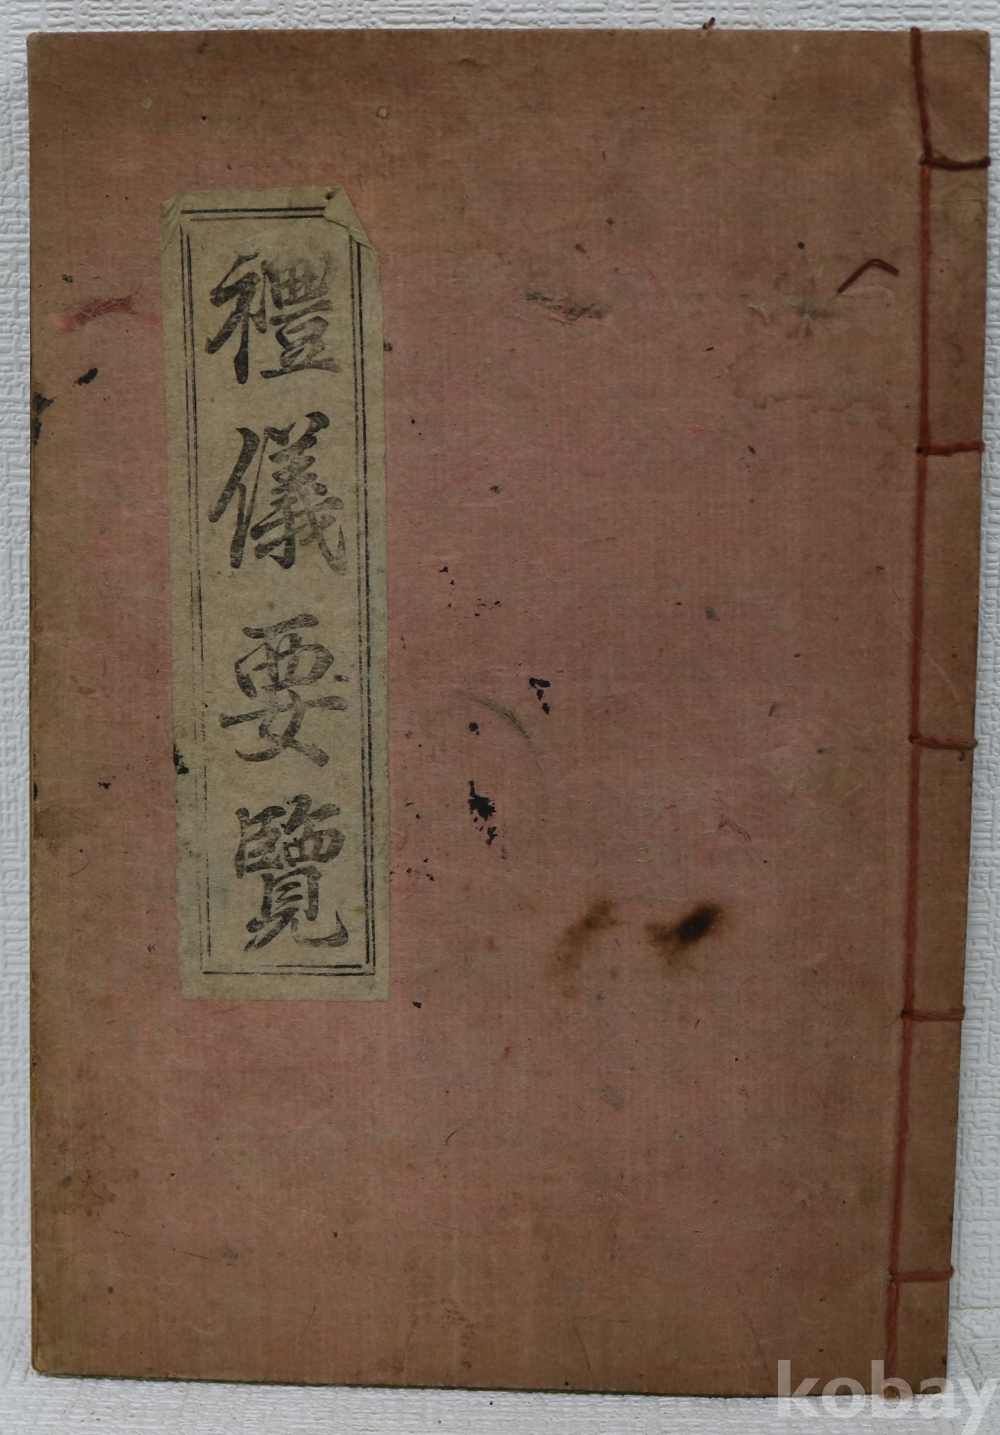 禮儀要覽
kobay